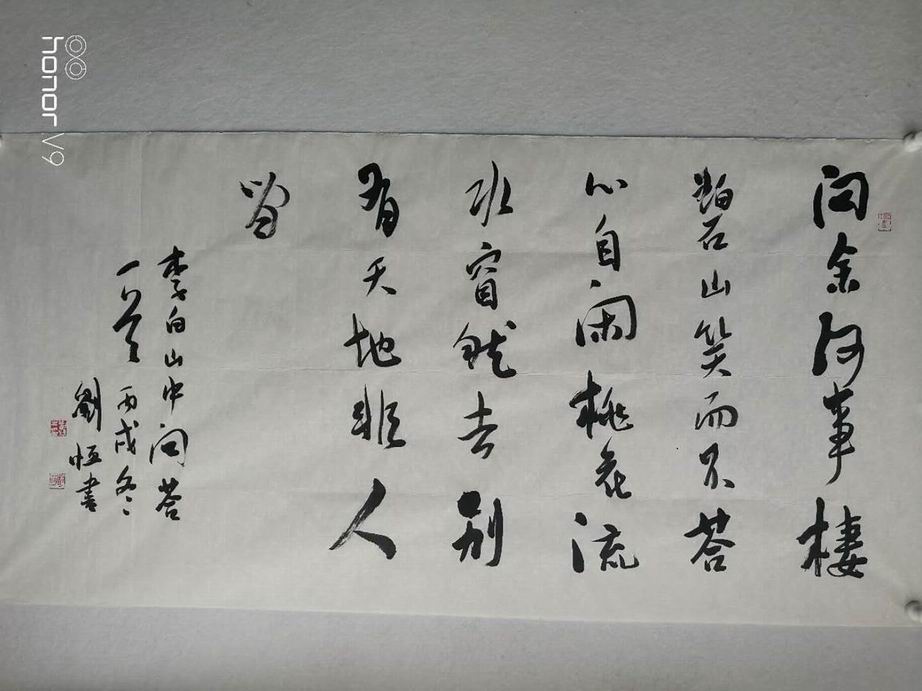 问余何事棲
碧山笑而不荅
心自闲桃花流
水窅然去别
有天地非人
間
李白山中问荅
一首 丙戌冬
劉恒書
honor V9